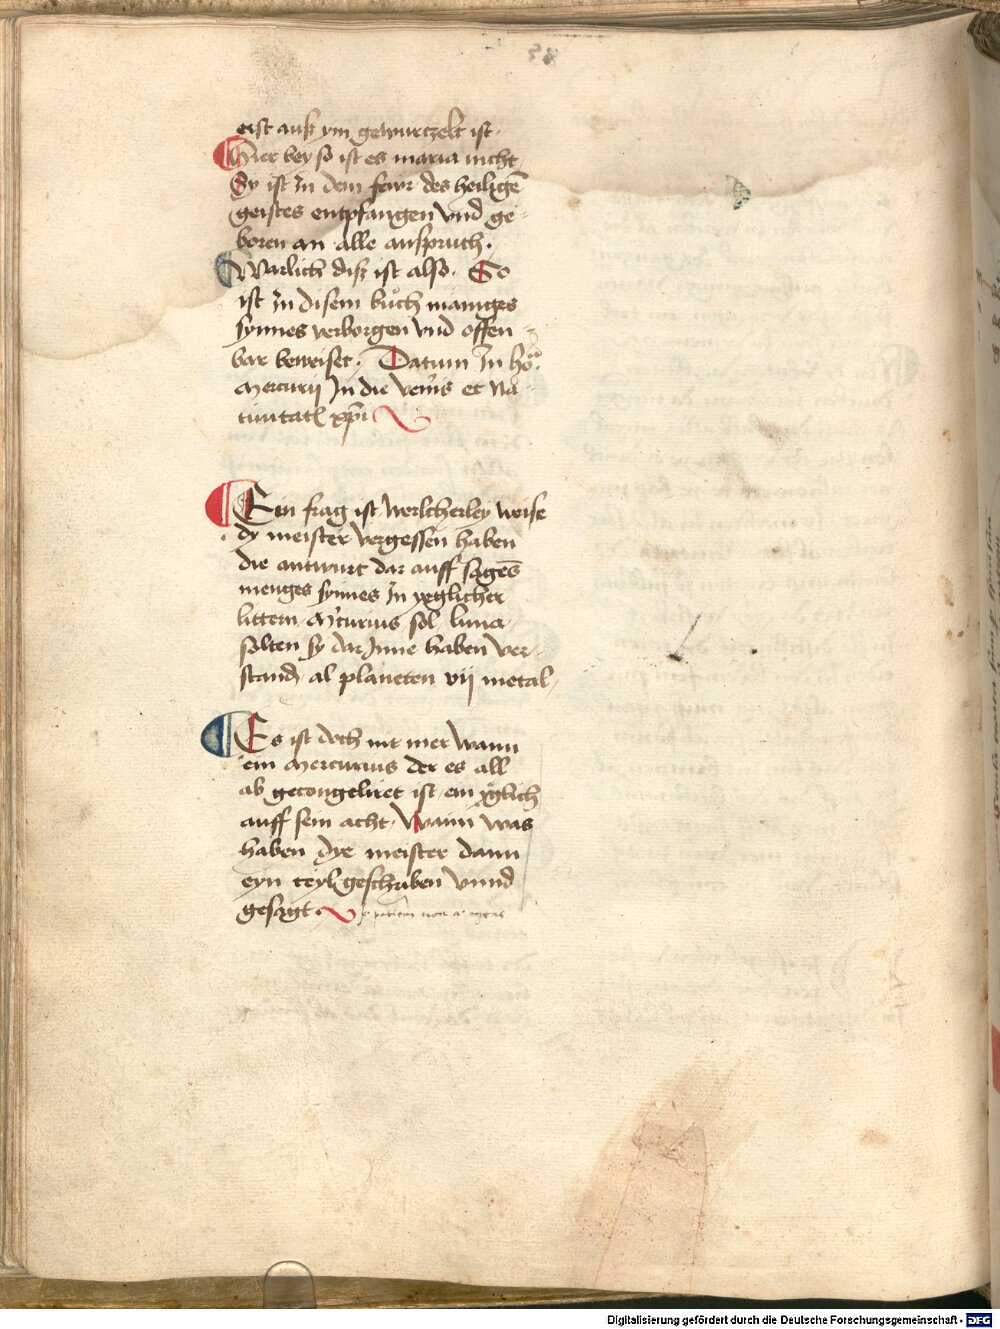 eist auß ym gewurtzelt ist.
Hier bey so ist es maria nicht
Sy ist in dem fewr des heiligē
geistes entpfangen vnd ge-
boren an alle anspruch.
Warlich diß ist also. So
ist in disem buͦch maniges
synnes verborgen vnd offen
bar beweiset. Datum in
Mercurij In die veneris et Na-
tiuitatis xpi
Ein frag ist welcherley weise
dy meister vergessen haben
die antwurt dar auff sagēs
menges synnes in yeglicher
littern, Mercurius, sol, luna,
solten sy dar Inne haben ver-
stand, al planeten vij metal,
Es ist doch nit mer wann
ein Mercurius der es all
ab gecongeliret ist, ein yglich
auff sein acht, Wann was
haben dye meister dann
eyn teyl geschriben vnnd
gesagt
Digitalisierung gefördert durch die Deutsche Forschungsgemeinschaft - DFG